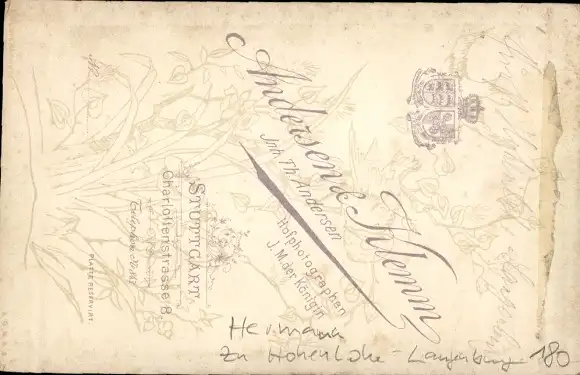 Andersen & Klemm
Jnh. Th. Andersen
Hofphotographen
J. M. der Königin
STUTTGART.
Charlottenstrasse 8.
PLATTE RESERVIRT
Hermann
zu Hohenlohe-Langenburg 180